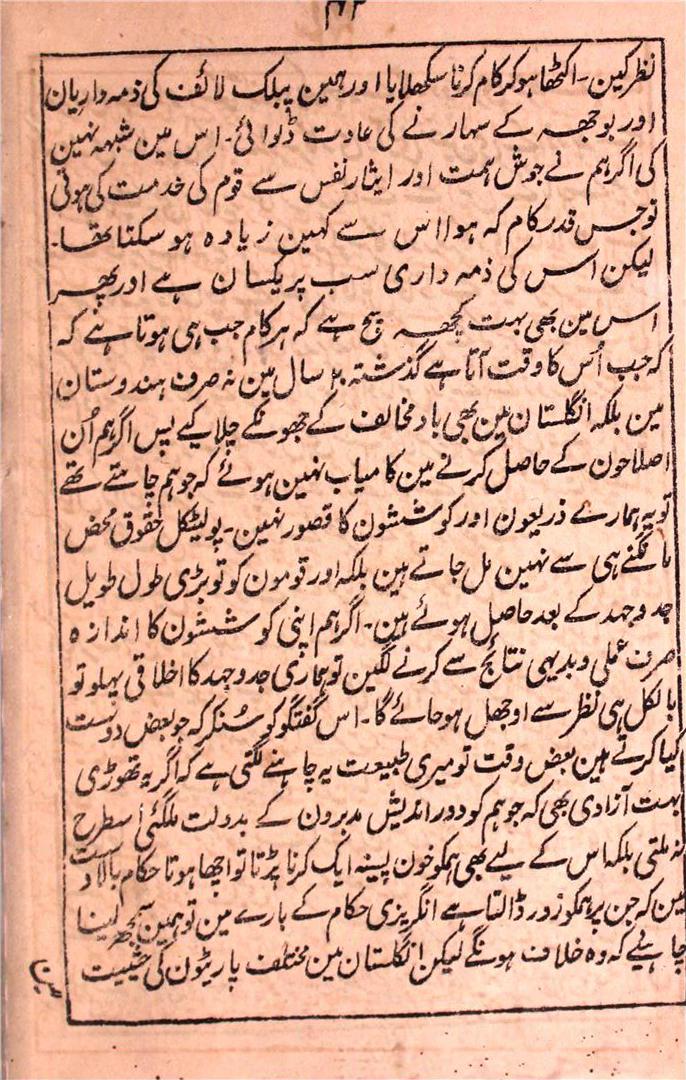 نظر کین - اکٹھا ہو کر کام کرنا سکھلایا اور ہمین پبلک لائف کی ذمہ داریان
اور بوجھہ کے سہارنے کی عادت ڈلوائی - اس مین شبہہ نہین
کی اگر ہم نے جوش ہمت اور ایثار نفس سے قوم کی خدمت کی ہوتی
تو جس قدر کام کہ ہوا اس سے کہین زیادہ ہو سکتا تھا -
لیکن اس کی ذمہ داری سب پر یکسان ہے اور پھر
اس مین بھی بہت کچھہ سچ ہے کہ ہر کام جب ہی ہوتا ہے کہ
کہ جب اُس کا وقت آتا ہے گذشتہ ۲۰ سال مین نہ صرف ہندوستان
مین بلکہ انگلستان مین بھی باد مخالف کے جھونکے چلا کیے پس اگر ہم اُن
اصلاحون کے حاصل کرنے مین کامیاب نہین ہوئے کہ جو ہم چاہتے تھے
تو یہ ہمارے ذریعون اور کوششون کا قصور نہین - پولیٹکل حقوق محض
مانگنے ہی سے نہین مل جاتے ہین بلکہ اور قومون کو تو بڑی طول طویل
جد و جہد کے بعد حاصل ہوئے ہین - اگر ہم اپنی کوششون کا اندازہ
صرف عملی و بدیہی نتائج سے کرنے لگین تو ہماری جد و جہد کا اخلاقی پہلو تو
بالکل ہی نظر سے اوجھل ہو جائے گا - اس گفتگو کو سُنکر کہ جو بعض دوست
کیا کرتے ہین بعض وقت تو میری طبیعت یہ چاہنے لگتی ہے کہ اگر یہ تھوڑی
بہت آزادی بھی کہ جو ہم کو دور اندیش مدبرون کے بدولت ملگئی اسطرح
نہ ملتی بلکہ اس کے لیے بھی ہمکو خون پسینہ ایک کرنا پڑتا تو اچھا ہوتا حکام بالا دست
مین کہ جن پر ہمکو زور ڈالنا ہے انگریزی حکام کے بارے مین تو ہمین سمجھ لینا
چاہیے کہ وہ خلاف ہونگے لیکن انگلستان مین مختلف پارٹیون کی حیثیت